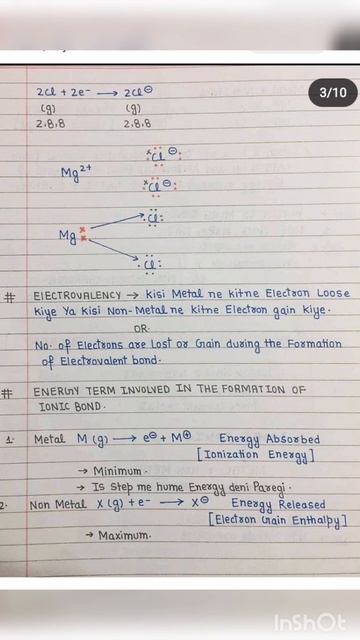 3/10
2Cl + 2e⁻ → 2Cl⊖
(g) (g)
2.8.8 2.8.8
Mg²⁺ Cl⊖
Cl⊖
Mg Cl
Cl
# ELECTROVALENCY → Kisi Metal ne kitne Electron Loose
Kiye Ya Kisi Non-Metal ne kitne Electron gain Kiye.
OR
No. of Electrons are Lost or Gain during the Formation
of Electrovalent bond.
# ENERGY TERM INVOLVED IN THE FORMATION OF
IONIC BOND.
1. Metal M(g) → e⊖ + M⊕ Energy Absorbed
[Ionization Energy]
→ Minimum.
→ Is step me hume Energy deni Paregi.
2. Non Metal X(g) + e⁻ → X⊖ Energy Released
[Electron Gain Enthalpy]
→ Maximum.
InShOt